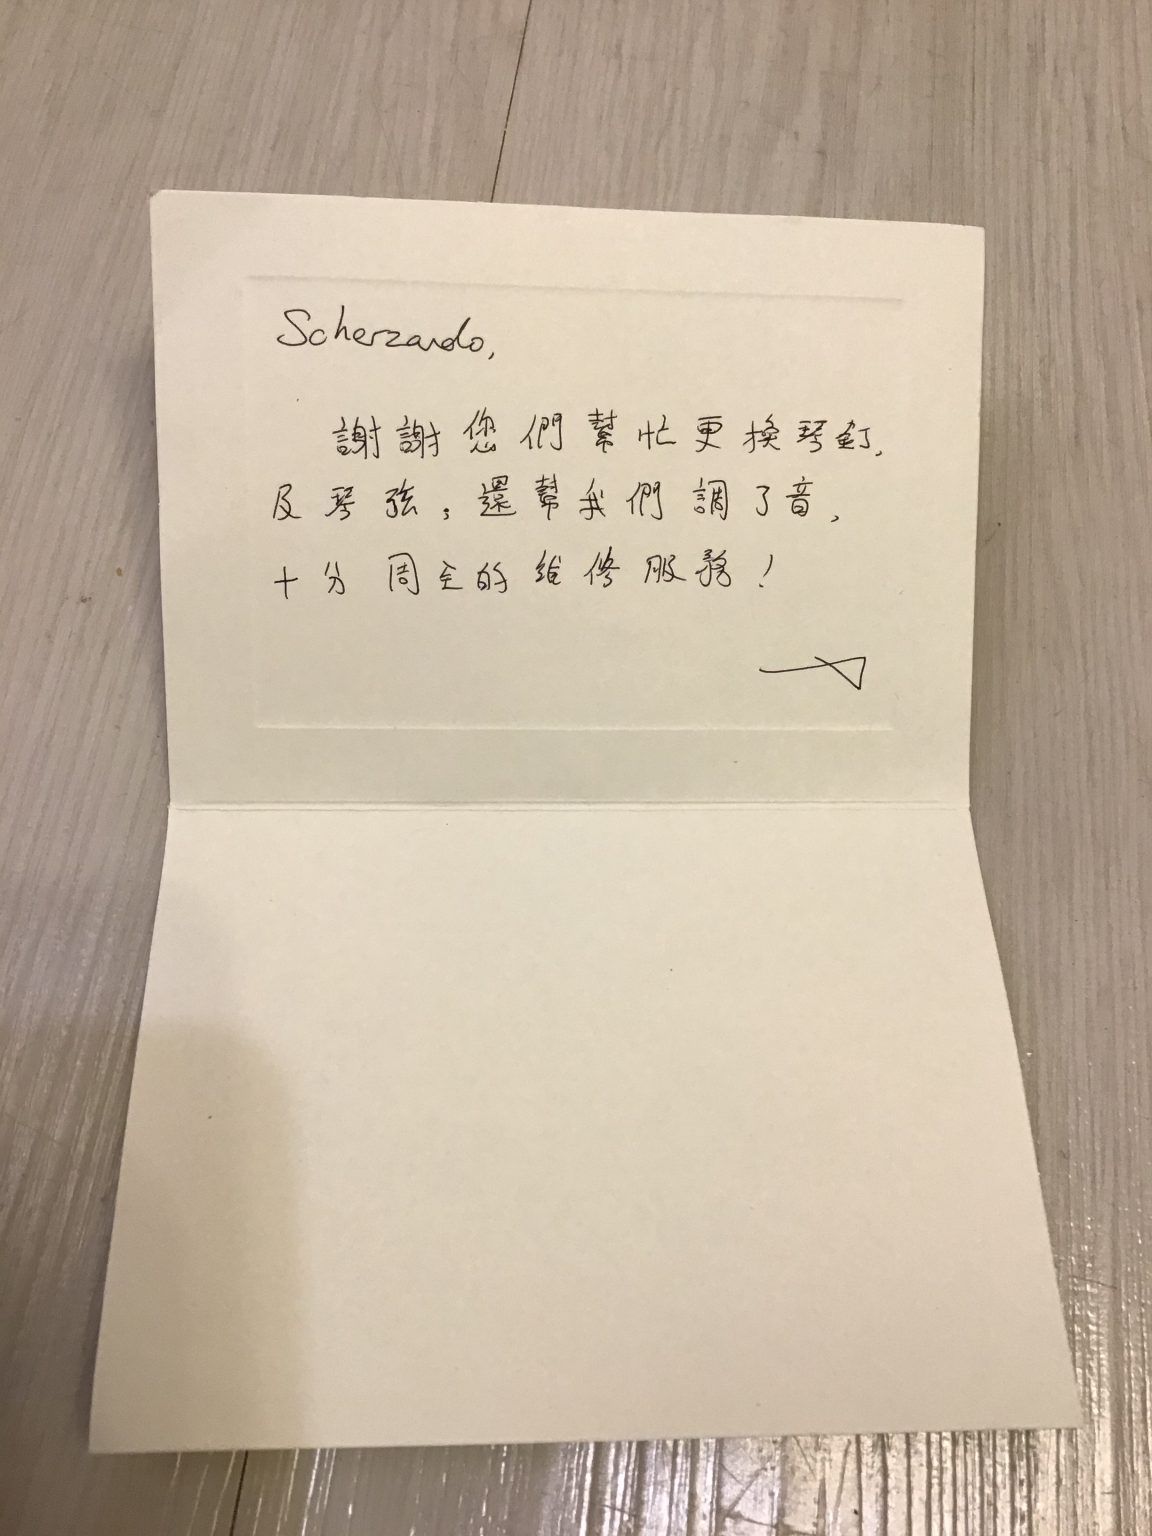 Scherzando,
謝謝您們幫忙更換琴釘,
及琴弦; 還幫我們調了音,
十分周全的維修服務!